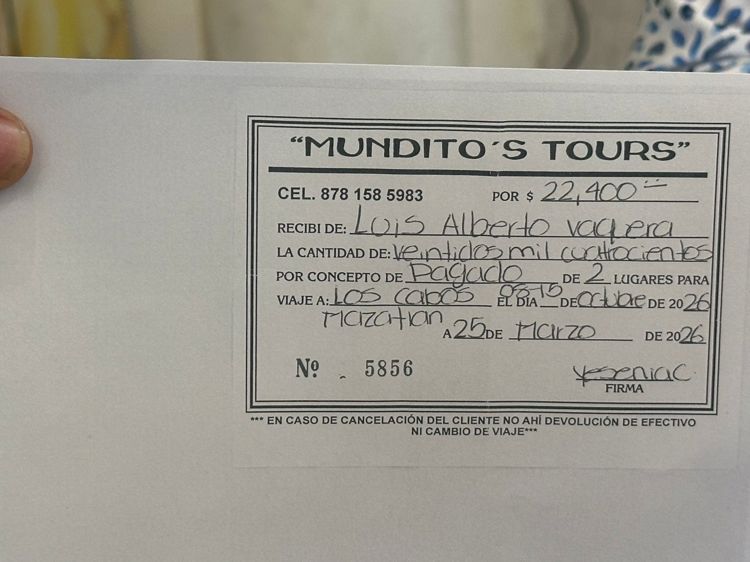 "MUNDITO´S TOURS"
CEL. 878 158 5983 POR $ 22,400
RECIBI DE: Luis Alberto vaquera
LA CANTIDAD DE: veintidos mil cuatrocientos
POR CONCEPTO DE Pagado DE 2 LUGARES PARA
VIAJE A: LOS cabos EL DÍA 08-15 DE octubre DE 2026
Mazatlan
A 25 DE Marzo DE 2026
Nº 5856
Yeseniac.
FIRMA
*** EN CASO DE CANCELACIÓN DEL CLIENTE NO AHÍ DEVOLUCIÓN DE EFECTIVO
NI CAMBIO DE VIAJE***